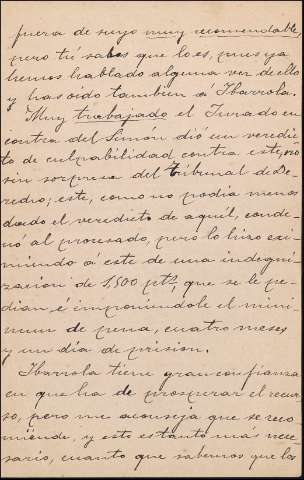 fuera de suyo muy recomendable,
pero tú sabes que lo es, pues ya
hemos hablado alguna vez de ello
y has oido tambien á Ibarrola.
Muy trabajado el Jurado en
contra del Simón dió un veredic
to de culpabilidad contra este, no
sin sorpresa del Tribunal de De-
recho; este, como no podia menos
dado el veredicto de aquél, conde-
nó al procesado, pero lo hizo exi-
miendo á este de una indegni-
zacion de 1,500 ptas, que se le pe-
dian é imponiéndole el mini-
mun de pena, cuatro meses
y un día de prision.
Ibarrola tiene gran confianza
en que ha de prosperar el recur
so, pero me aconseja que se reco
miende, y esto es tanto más nece-
sario, cuanto que sabemos que los